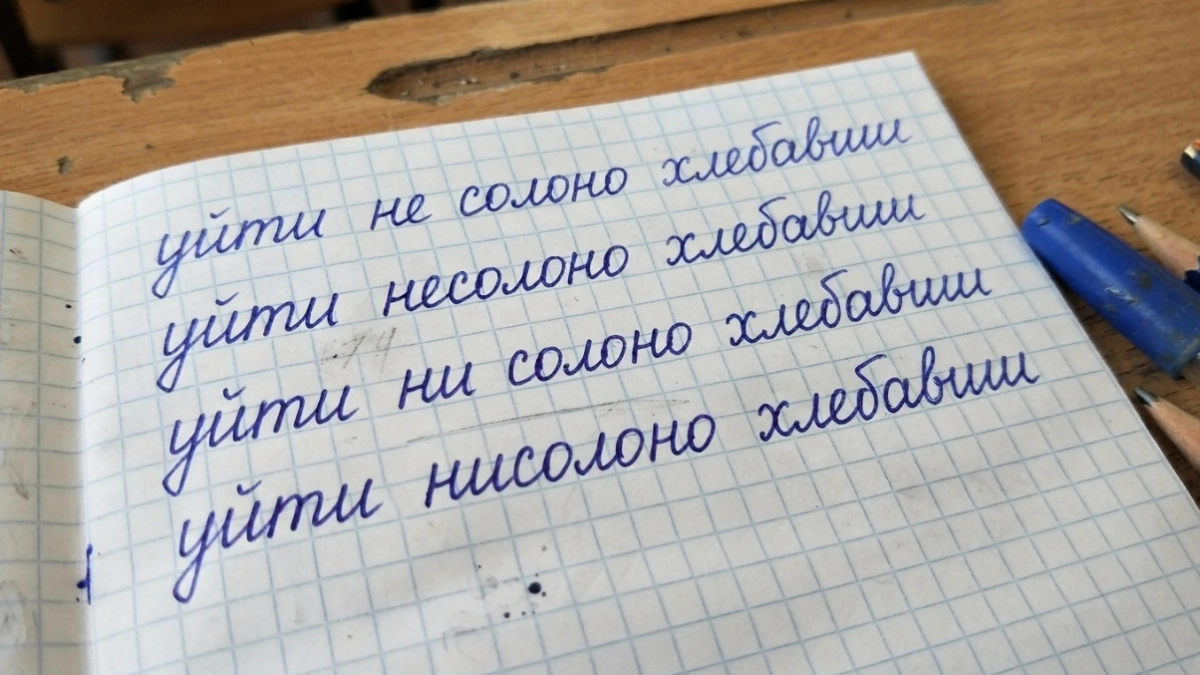 уйти не солоно хлебавши
уйти несолоно хлебавши
уйти ни солоно хлебавши
уйти нисолоно хлебавши